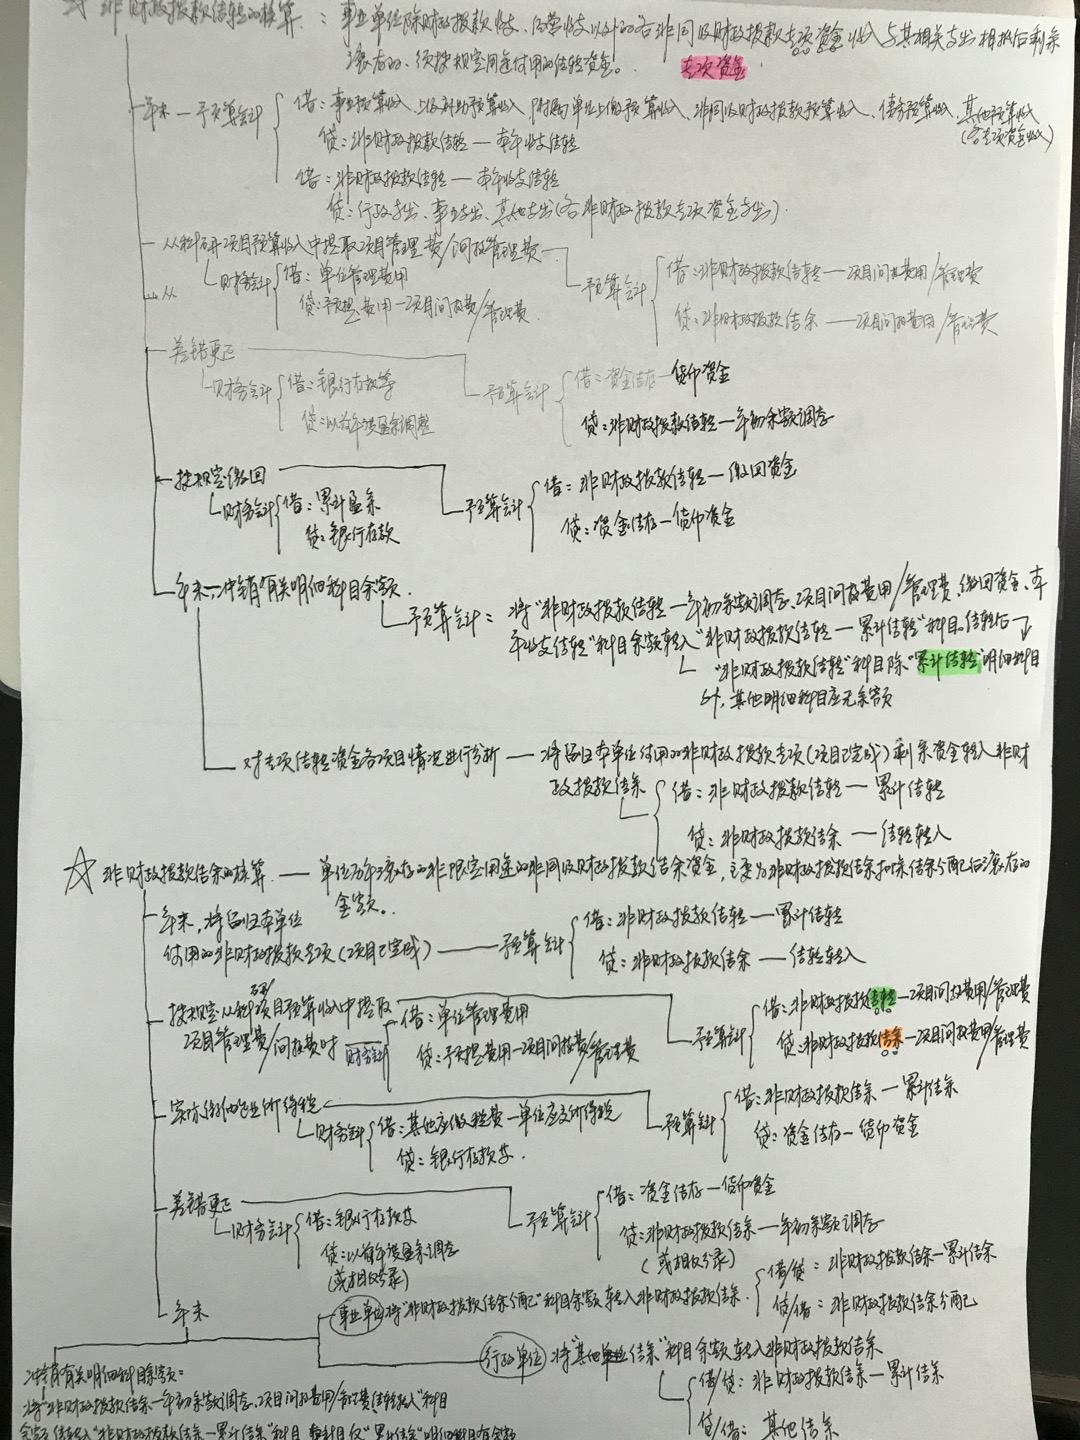 非财政拨款结转的核算：事业单位除财政拨款收支、经营收支以外的各非同级财政拨款专项资金收入与其相关支出相抵后剩余
滚存的、须按规定用途使用的结转资金。 专项资金
年末—预算会计 借：事业预算收入、上级补助预算收入、附属单位上缴预算收入、非同级财政拨款预算收入、债务预算收入、其他预算收入
(各专项资金收入)
贷：非财政拨款结转—本年收支结转
借：非财政拨款结转—本年收支结转
贷：行政支出、事业支出、其他支出(各非财政拨款专项资金支出)
从科研项目预算收入中提取项目管理费/间接管理费
财务会计 借：单位管理费用
贷：预提费用—项目间接费/管理费.
预算会计 借：非财政拨款结转—项目间接费用/管理费
贷：非财政拨款结余—项目间接费用/管理费
从
差错更正
财务会计 借：银行存款等
贷：以前年度盈余调整
预算会计 借：资金结存—货币资金
贷：非财政拨款结转—年初余额调整
按规定缴回
财务会计 借：累计盈余
贷：银行存款
预算会计 借：非财政拨款结转—缴回资金
贷：资金结存—货币资金
年末—冲销有关明细科目余额
预算会计：将"非财政拨款结转—年初余额调整、项目间接费用/管理费、缴回资金、本
年收支结转"科目余额转入"非财政拨款结转—累计结转"科目。结转后
"非财政拨款结转"科目除"累计结转"明细科目
外，其他明细科目应无余额
对专项结转资金各项目情况进行分析—将留归本单位使用的非财政拨款专项(项目已完成)剩余资金转入非财
政拨款结余
借：非财政拨款结转—累计结转
贷：非财政拨款结余—结转转入
☆ 非财政拨款结余的核算.——单位历年滚存的非限定用途的非同级财政拨款结余资金，主要为非财政拨款结余扣除结余分配后滚存的
金额。
年末，将留归本单位
使用的非财政拨款专项(项目已完成)——预算会计 借：非财政拨款结转—累计结转
贷：非财政拨款结余—结转转入
按规定从科研项目预算收入中提取
项目管理费/间接费时
财务会计 借：单位管理费用
贷：预提费用—项目间接费/管理费
预算会计 借：非财政拨款结转—项目间接费用/管理费
贷：非财政拨款结余—项目间接费用/管理费
实际缴纳企业所得税
财务会计 借：其他应缴税费—单位应交所得税
贷：银行存款等.
预算会计 借：非财政拨款结余—累计结余
贷：资金结存—货币资金
差错更正
财务会计 借：银行存款等
贷：以前年度盈余调整
(或相反分录)
预算会计 借：资金结存—货币资金
贷：非财政拨款结余—年初余额调整
(或相反分录)
年末
事业单位 将"非财政拨款结余分配"科目余额转入非财政拨款结余.
借/贷：非财政拨款结余—累计结余
贷/借：非财政拨款结余分配
行政单位 将"其他结余"科目余额转入非财政拨款结余
借/贷：非财政拨款结余—累计结余
贷/借：其他结余
冲销有关明细科目余额：
将"非财政拨款结余—年初余额调整、项目间接费用/管理费、结转转入"科目
余额结转入"非财政拨款结余—累计结余"科目